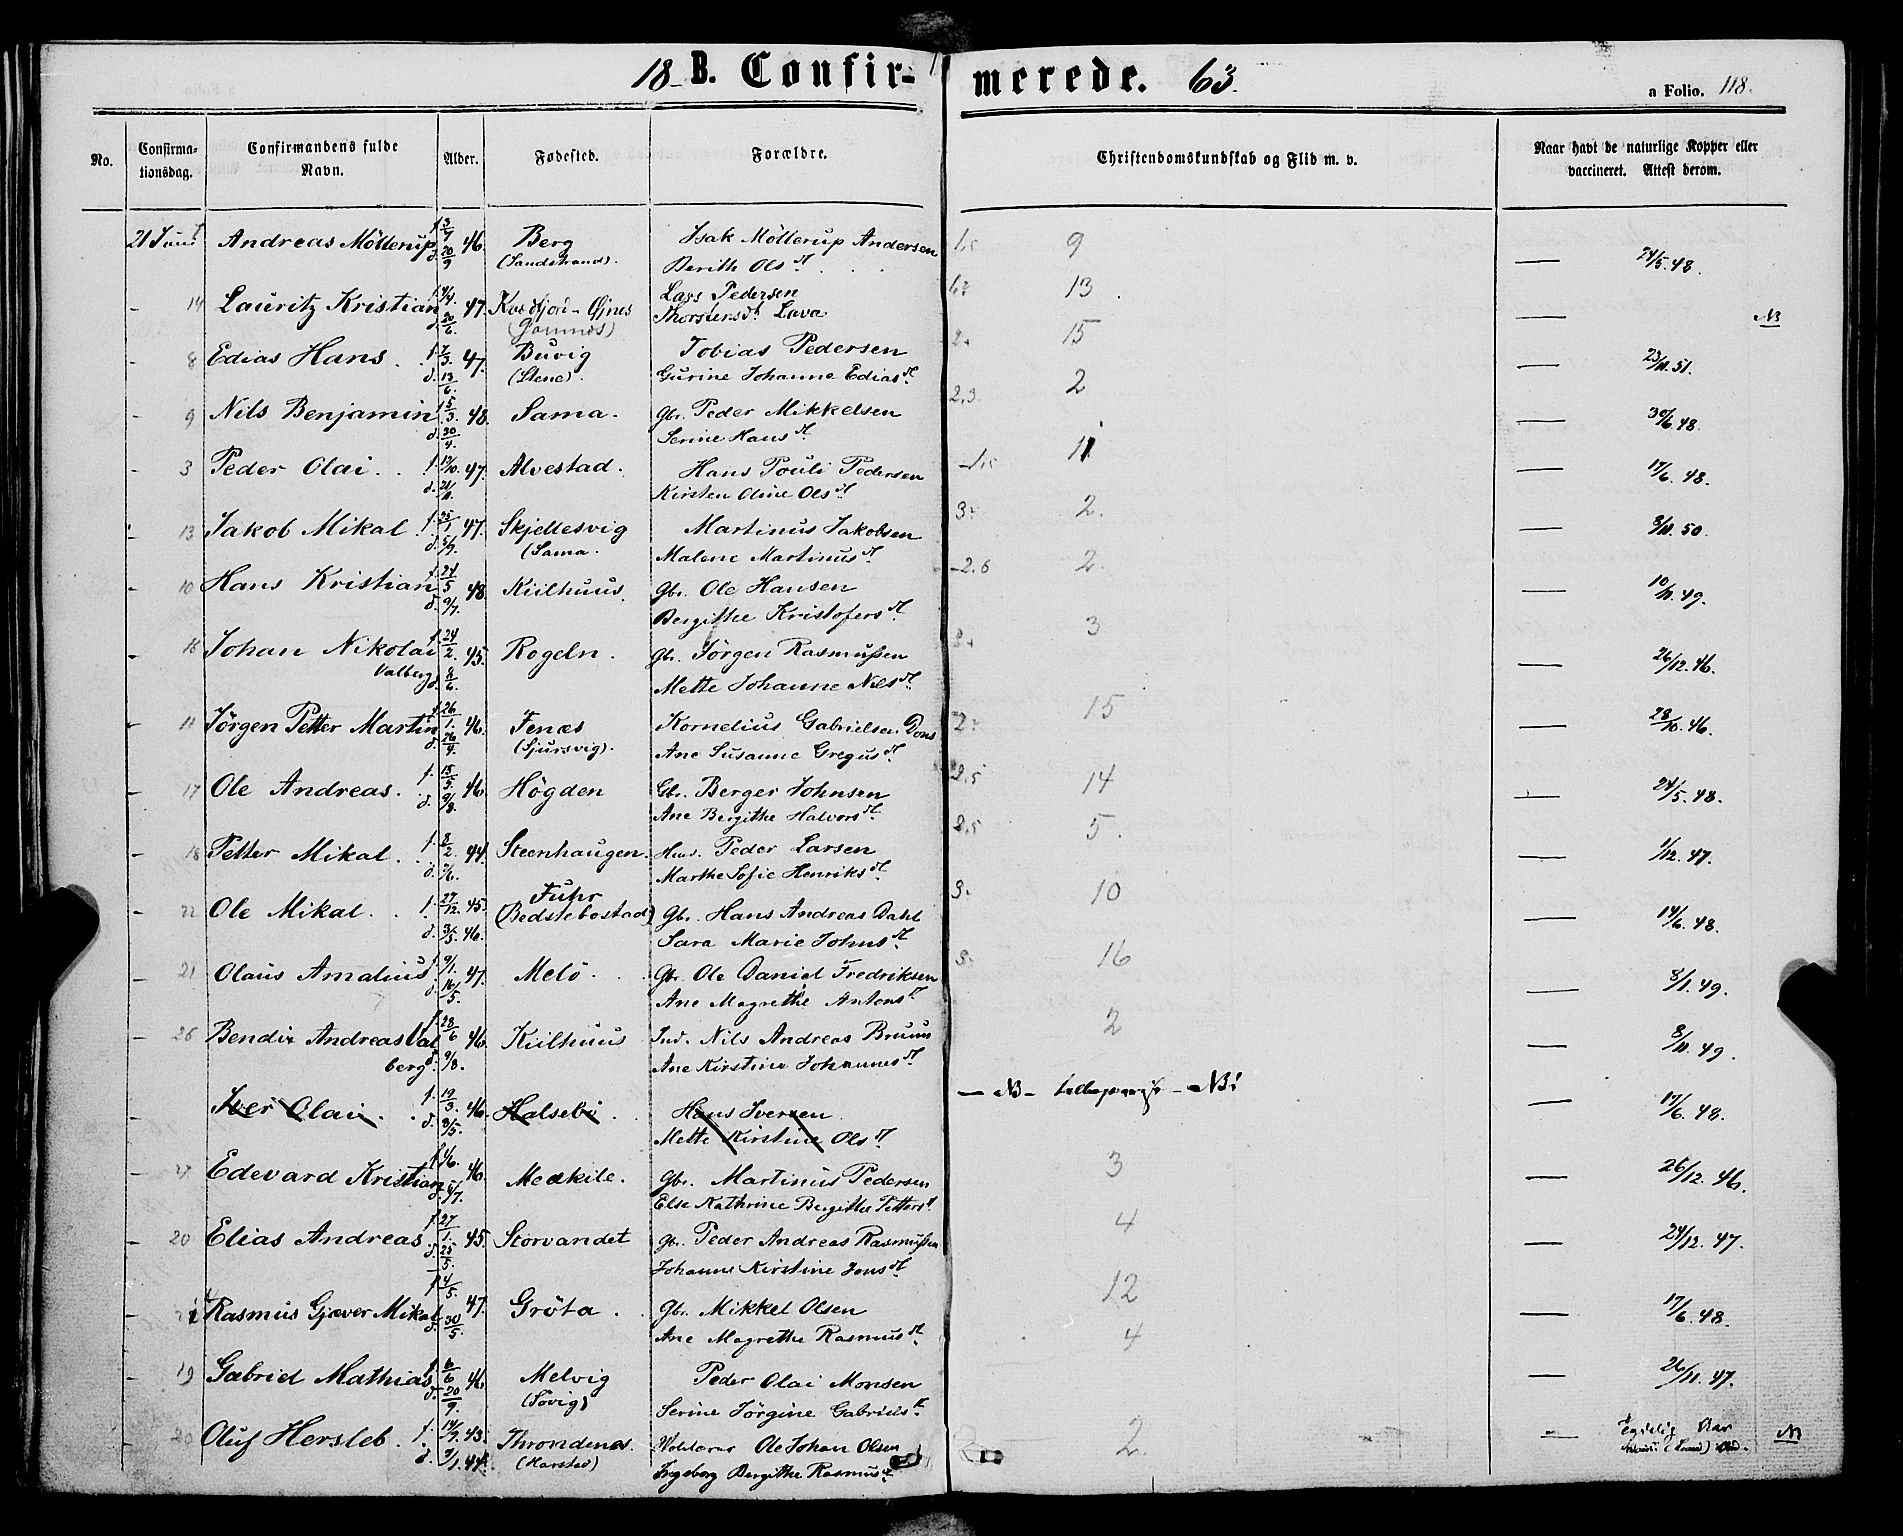 18 B. Confirmerede. 63.
a Folio. 118.
No.
Confirmationsdag.
Confirmandens fulde Navn.
Alder.
Fødested.
Forældre.
Christendomskundskab og Flid m. v.
Naar havt de naturlige Kopper eller vaccineret. Attest derom.
21 Juni Andreas Möllerup f. 3/7 46. Berg Isak Möllerup Andersen 1,5 9 — 24/5. 48.
d. 20/9 (Sandstrand). Berith Olsdt.
14 Lauritz Kristian 47. Kasfjord - Lars Pedersen 13 — NB
d. 20/6. Thorstensdt. Lava
8 Edias Hans. f. 7/3. 47. Buvig Tobias Pedersen 2. 15 — 23/11. 51.
d. 13/6. (Stene). Gurine Johanne Ediasdt.
9 Nils Benjamin f. 5/3. 48. Sama. gbr. Peder Mikkelsen 2.3. 2 — 30/6. 48.
d. 30/4. Serine Hansdt.
3 Peder Olai. f. 12/10. 47. Alvestad. Hans Pouli Pedersen 1,5 11 — 17/6. 48.
d. 21/11. Kirsten Oline Olsdt.
13 Jakob Mikal f. 25/1 47. Skjellesvig Martinus Jakobsen 3. 2. — 50.
d. (Sama. Malene Martinusdt.
10 Hans Kristian f. 24/5 48. Kiilhuus. gbr. Ole Hansen 2.6 2. — 10/11. 49.
d. 9/7. Bergithe Kristofersdt.
16 Johan Nikolai f. 24/2. 45. Rogeln. gbr. Jörgen Rasmussen 3 — 26/12. 46.
Valberg d. 8/6. Mette Johanne Nilsdt.
11 Jörgen Petter Martin f. 26/1. 46. Fenæs Kornelius Gabrielsen Dons 2. 15 — 28/10. 46.
d. 26/4. (Sjursvig). Ane Susanne Gregusdt.
17 Ole Andreas. f. 46. Högden Gbr. Berger Johnsen 2.5 14 — 24/5. 48.
d. 9/8. Ane Bergithe Halvorsdt.
18 Petter Mikal. f. 8/2. 44. Steenhaugen. Huusm. Peder Larsen 2.5 5. — 1/12. 47.
d. Marthe Sofie Henriksdt.
22 Ole Mikal. f. 27/12. 45. Fuhr (Bedstebostad) gbr. Hans Andreas Dahl 3. 10 — 14/6. 48.
d. 3/5. 46. Sara Marie Johnsdt.
21 Olaus Amalius f. 9/1. 47. Melö. gbr. Ole Daniel Fredriksen 3. 16 — 8/1. 49.
d. 16/5. Ane Magrethe Antonsdt.
26 Bendix Andreas Val f. 28/6 46. Kiilhuus Ind. Nils Andreas Bruun 2 — 8/11. 49.
berg d. 9/8. Ane Kirstine Johannesdt.
Iver Olai. f. 19/3. 46. Halsebö. Hans Iversen — NB — — NB! — 17/6. 48.
d. 3/5. Mette Kirstine Olsdt.
Edevard Kristian f. 46. Medkile. gbr. Martinus Pedersen 3 — 26/12. 46.
d. Else Kathrine Bergithe Pettersdt.
20 Elias Andreas f. 27/1. 45. Storvandet gbr. Peder Andreas Rasmussen 4 — 24/12. 47.
d. 25/5. Johanne Kirstine Jonsdt.
Rasmus Gjæver Mikal f. 4/5. 47. Gröta. gbr. Mikkel Olsen 12 — 17/6. 48.
d. 30/5. Ane Magrethe Rasmusdt.
19 Gabriel Mathias f. 6/6 46. Melvig Peder Olai Monsen 4 — 26/11. 47.
d. 20/9. (Sövig) Serine Jörgine Gabrielsdt.
20 Oluf Hersleb. f. 43. Throndenæs. Ole Johan Olsen 2. —
d. 44. (Harstad) Ingeborg Bergithe Rasmusdt.